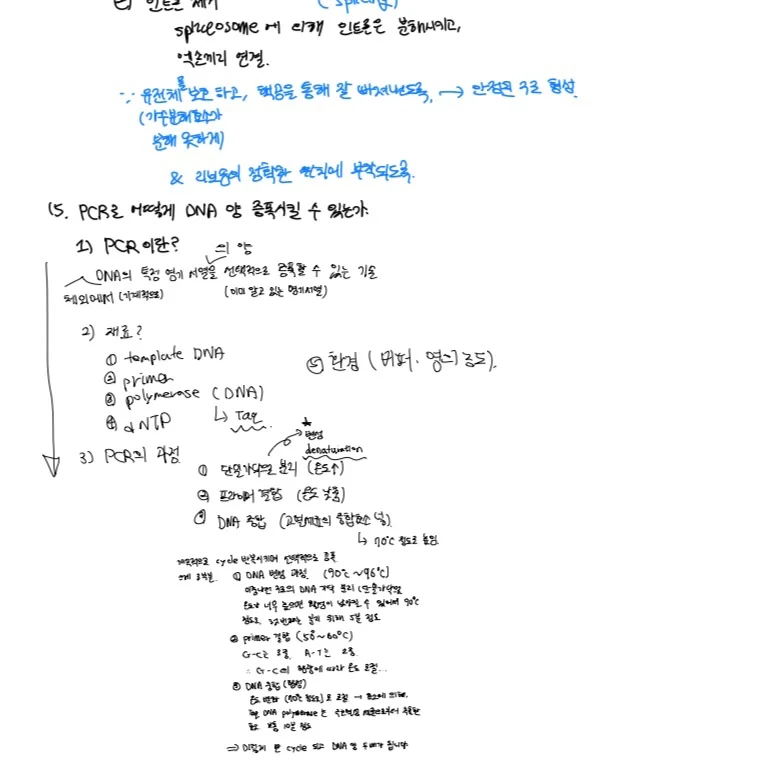 ② 인트론 제거 (splicing)
spliceosome에 의해 인트론은 분해시키고,
엑손끼리 연결.
∵ 유전체를 보호하고, 핵공을 통해 잘 빠져나도록, → 안정된 구조 형성
(가수분해효소가
분해 못하게)
& 리보솜의 정확한 위치에 부착되도록.
15. PCR로 어떻게 DNA 양 증폭시킬 수 있는가
1) PCR이란? 의 양
DNA의 특정 염기 서열을 선택적으로 증폭할 수 있는 기술
체외에서 (기계적으로) (이미 알고 있는 염기서열)
2) 재료?
① template DNA
② primer
⑤ 환경 (버퍼, 염농도).
③ polymerase (DNA)
④ dNTP ↳ Taq
★ 변성
denaturation
3) PCR의 과정
① 단일가닥으로 분리 (온도↑)
② 프라이머 결합 (온도 낮춤)
③ DNA 중합 (고열세균의 중합효소 넣)
↳ 70℃ 정도로 높임
cycle 반복시키며 선택적으로 증폭
① DNA 변성 과정 (90℃~96℃)
이중나선 구조의 DNA 가닥 분리 (단일가닥
온도가 너무 높으면 활성이 낮아질 수 있어서 90℃
위해 5분 정도
② primer 결합 (50°~60℃)
G-C는 3중, A-T는 2중
∴ G-C의 함량에 따라 온도 조절...
③ DNA 중합 (합성)
온도 변화 (70℃ 정도)로 조절 →
DNA polymerase는
보통 10분 정도
⇒ 이렇게 한 cycle 되고 DNA 양 두배가 됩니다